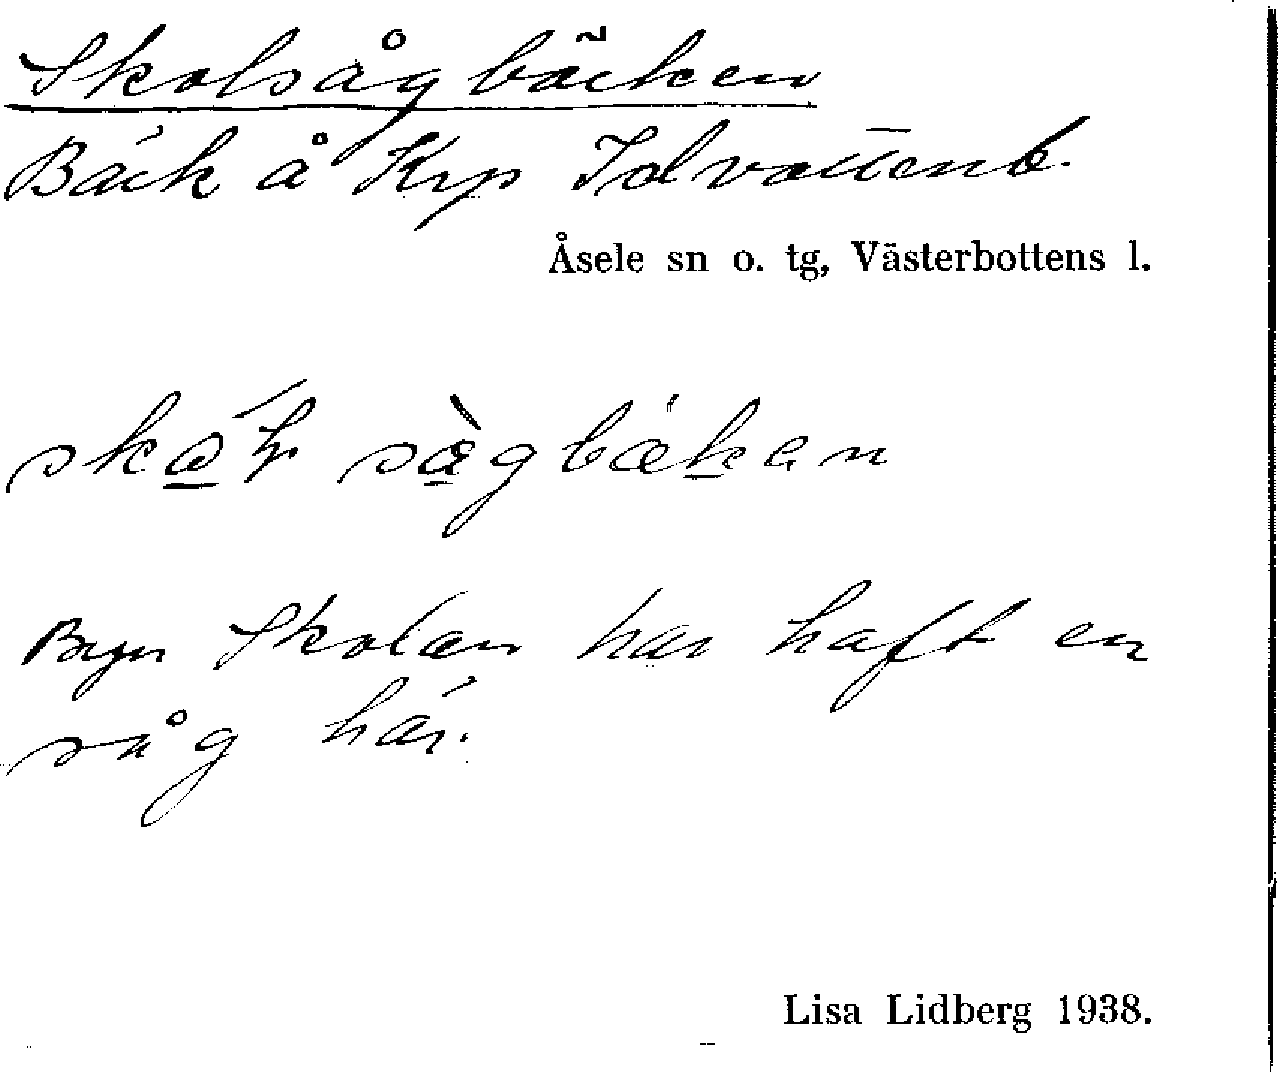 Skolsågbäcken
Bäck å Krp Idvattenb.
Åsele sn o. tg, Västerbottens l.
sågbäken
Byn Skolan har haft en
såg här.
Lisa Lidberg 1938.